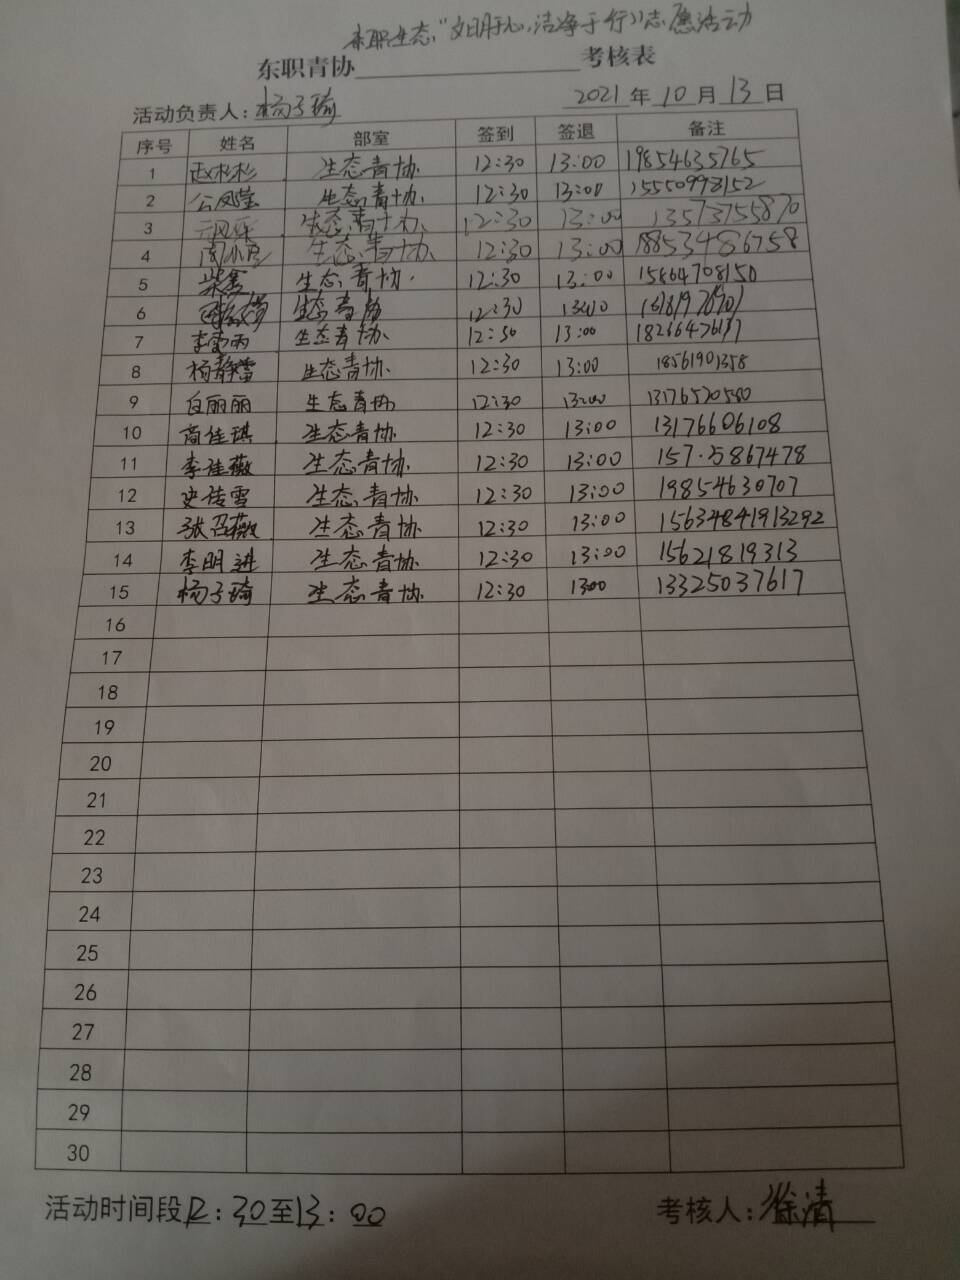 东职生态“文明于心，洁净于行”志愿活动
东职青协 考核表
活动负责人：杨子琦 2021年10月13日
序号 姓名 部室 签到 签退 备注
1 赵杉杉 生态青协 12:30 13:00 19854635765
2 公凤莹 生态青协 12:30 13:00 15550993152
3 生态青协 12:30 13:00 13573755870
4 周小雨 生态青协 12:30 13:00 18853486758
5 柴鑫 生态青协 12:30 13:00 15864708150
6 生态青协 12:30 13:00
7 李雪雨 生态青协 12:30 13:00
8 杨静雷 生态青协 12:30 13:00 18561901358
9 白丽丽 生态青协 12:30 13:00 13176520580
10 商佳琪 生态青协 12:30 13:00 13176606108
11 李佳薇 生态青协 12:30 13:00
12 史诗雪 生态青协 12:30 13:00 19854630707
13 张召薇 生态青协 12:30 13:00 15634841913292
14 李明进 生态青协 12:30 13:00 15621819313
15 杨子琦 生态青协 12:30 1300 13325037617
16
17
18
19
20
21
22
23
24
25
26
27
28
29
30
活动时间段12:30至13:00 考核人：徐清